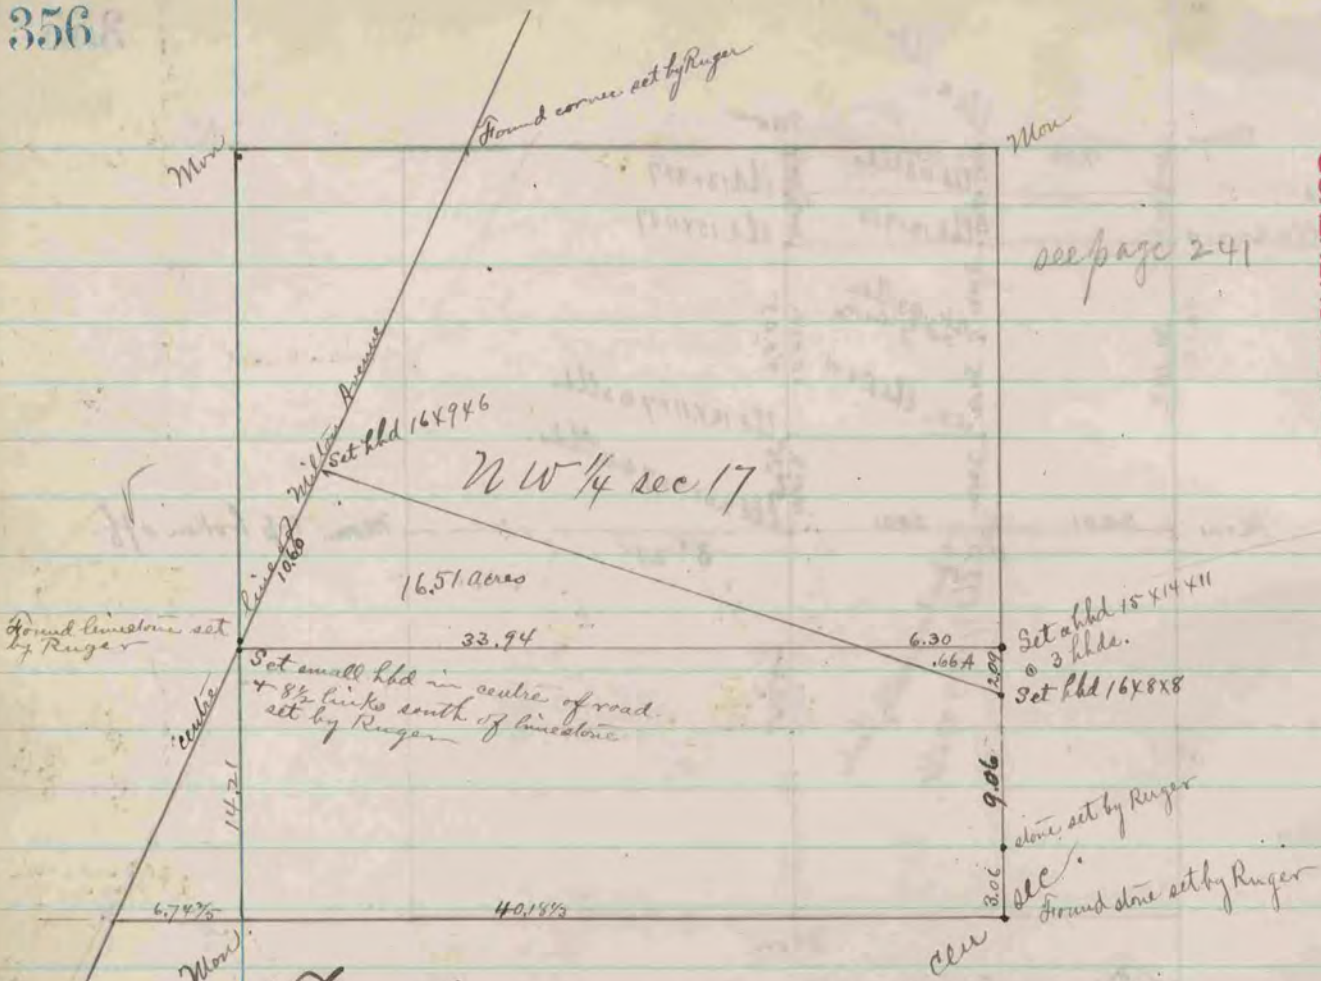 356
Found corner set by Ruger
Mon
Mon
see page 241
centre line of Milton Avenue
10.60
Set hhd 16x9x6
N W 1/4 sec 17
16.51 acres
Found limestone set
by Ruger
33.94
6.30
.66A
2.09
Set a hhd 15x14x11
⊙ 3 hhds.
Set hhd 16x8x8
Set small hhd in centre of road
+ 8½ links south of limestone
set by Ruger
14.21
9.06
stone set by Ruger
3.06
sec.
Found stone set by Ruger
6.74
40.18⅓
Mon
Cen